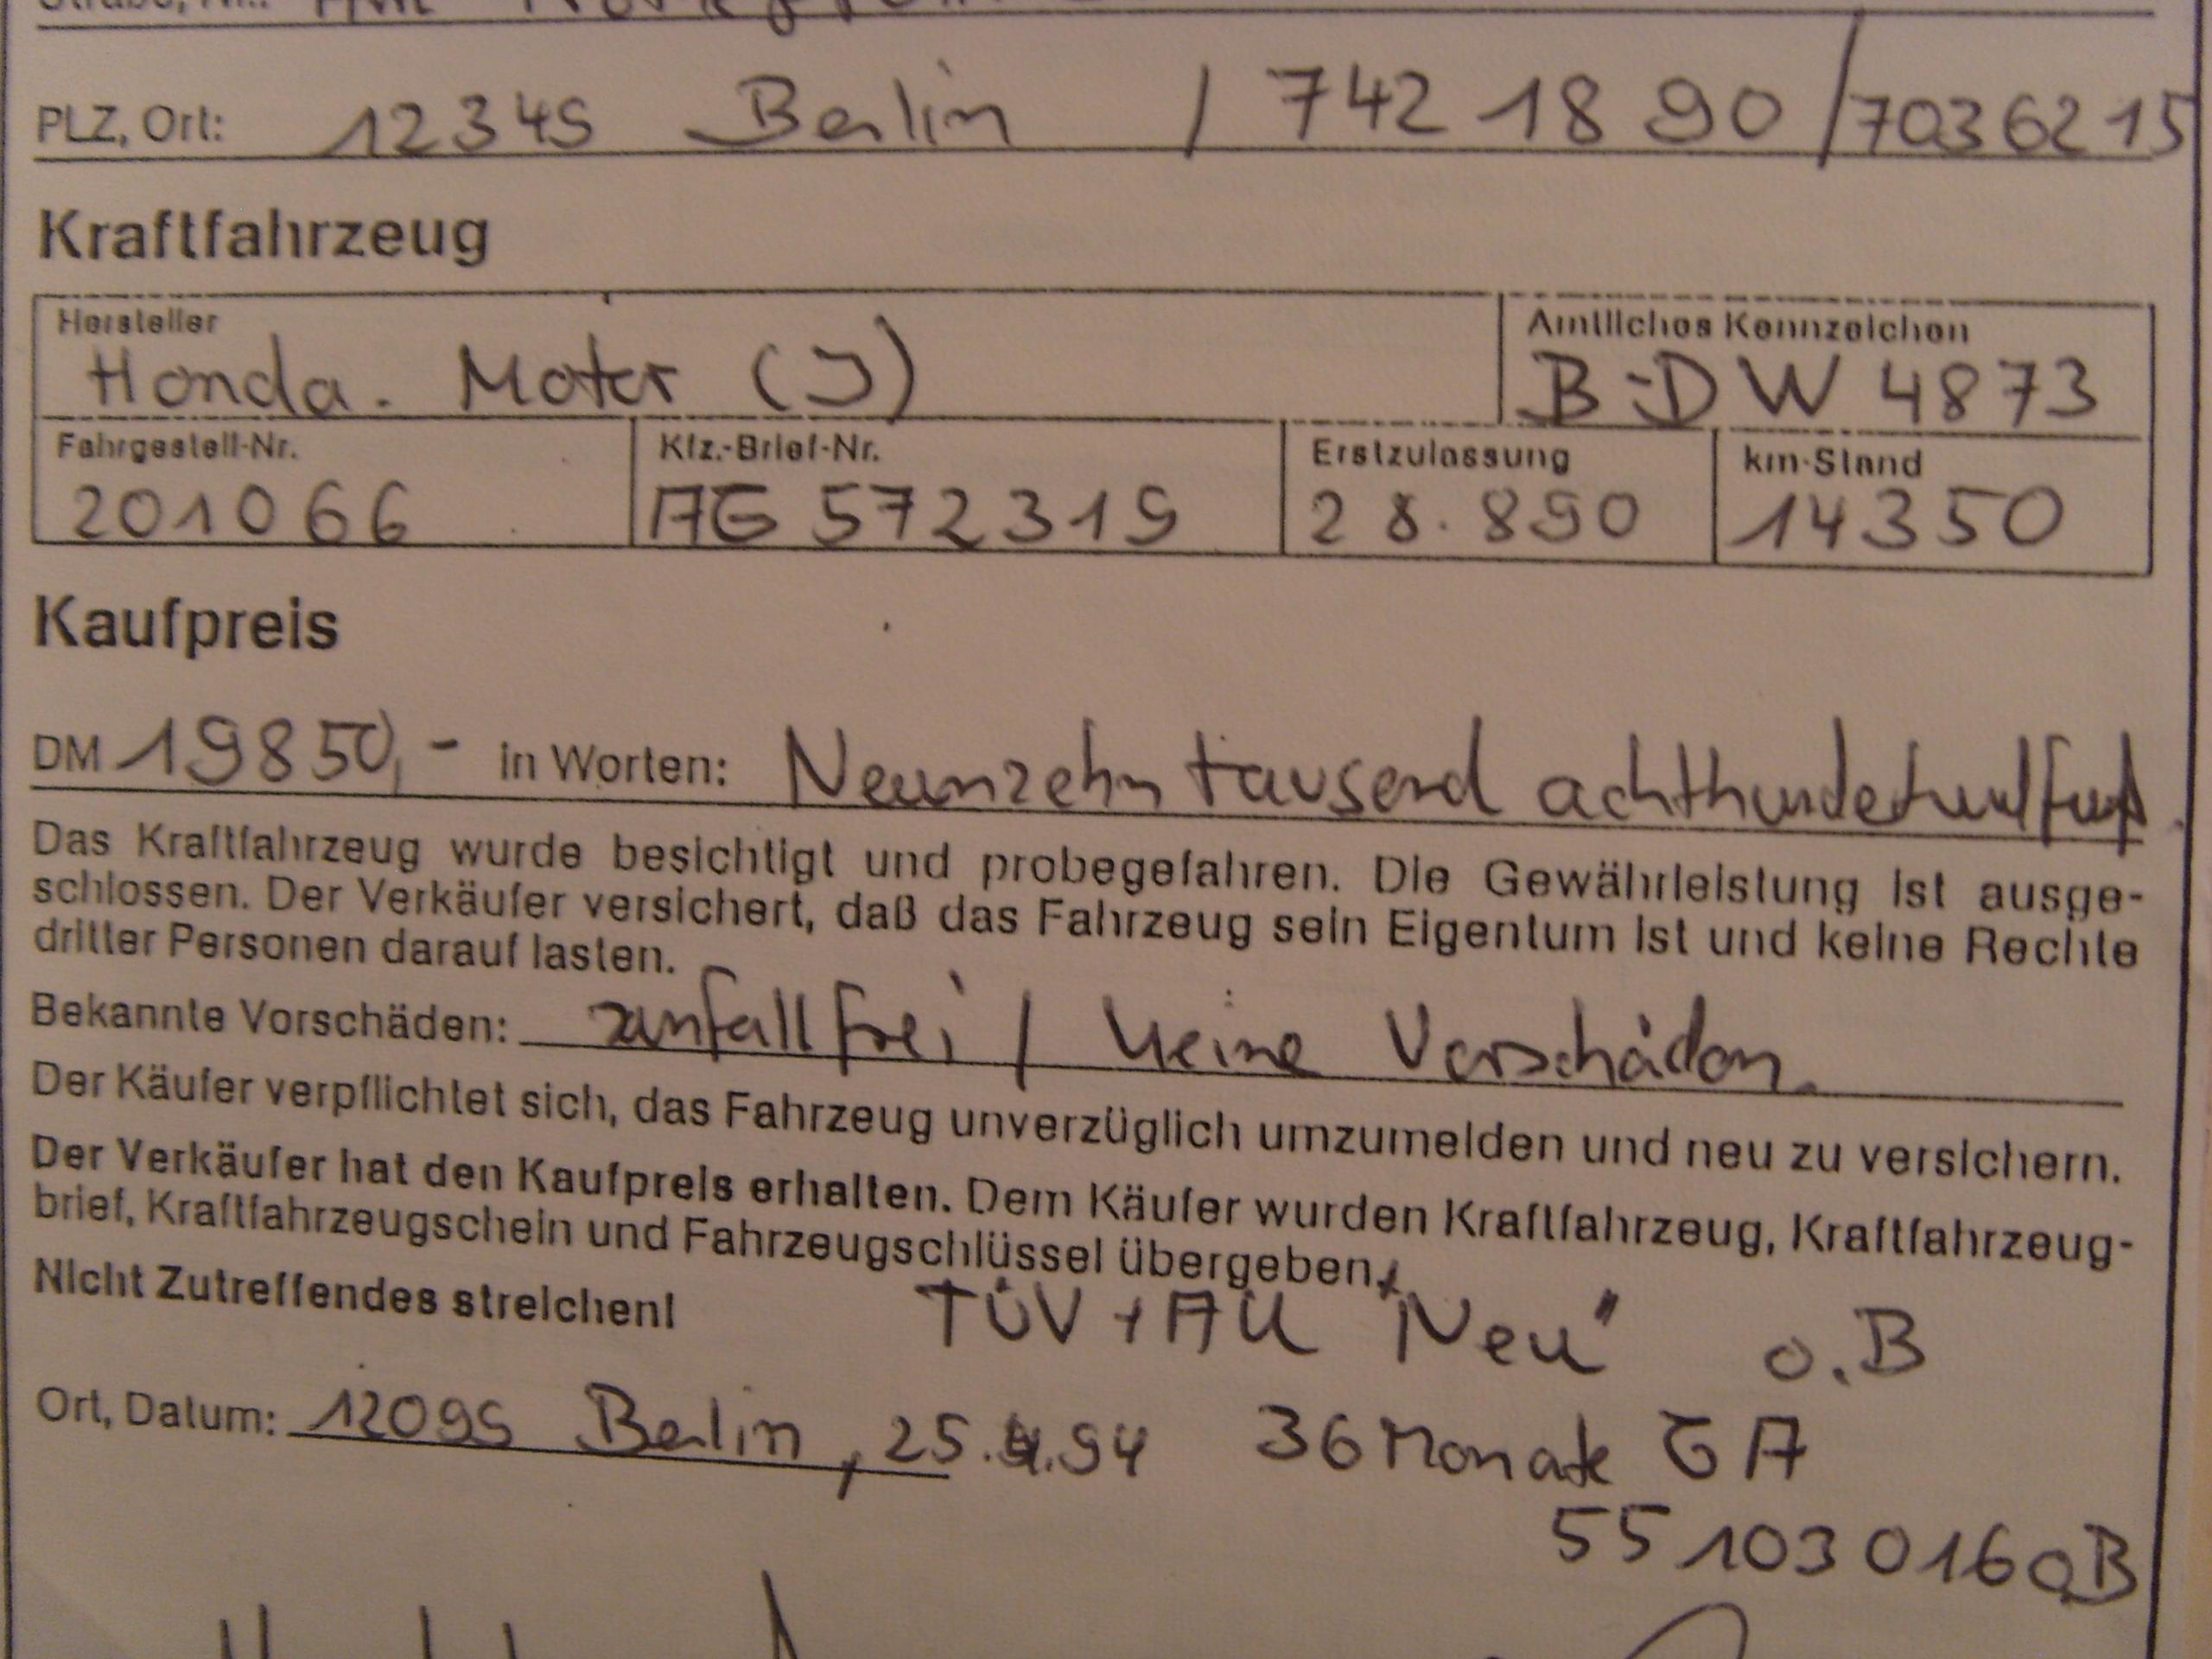 Straße, Nr.: Am
PLZ, Ort: 12345 Berlin / 742 18 90 / 7036215
Kraftfahrzeug
Hersteller
Honda. Motor (J)
Amtliches Kennzeichen
B-DW 4873
Fahrgestell-Nr.
201066
Kfz.-Brief-Nr.
AG 572319
Erstzulassung
28.890
km-Stand
14350
Kaufpreis
DM 19850,- in Worten: Neunzehntausend achthundertundfünf
Das Kraftfahrzeug wurde besichtigt und probegefahren. Die Gewährleistung ist ausge-
schlossen. Der Verkäufer versichert, daß das Fahrzeug sein Eigentum ist und keine Rechte
dritter Personen darauf lasten.
Bekannte Vorschäden: unfallfrei / keine Vorschäden.
Der Käufer verpflichtet sich, das Fahrzeug unverzüglich umzumelden und neu zu versichern.
Der Verkäufer hat den Kaufpreis erhalten. Dem Käufer wurden Kraftfahrzeug, Kraftfahrzeug-
brief, Kraftfahrzeugschein und Fahrzeugschlüssel übergeben.
Nicht Zutreffendes streichen!
TÜV + AU "Neu" o.B
Ort, Datum: 12099 Berlin, 25.4.94
36 Monate GA
551030160B